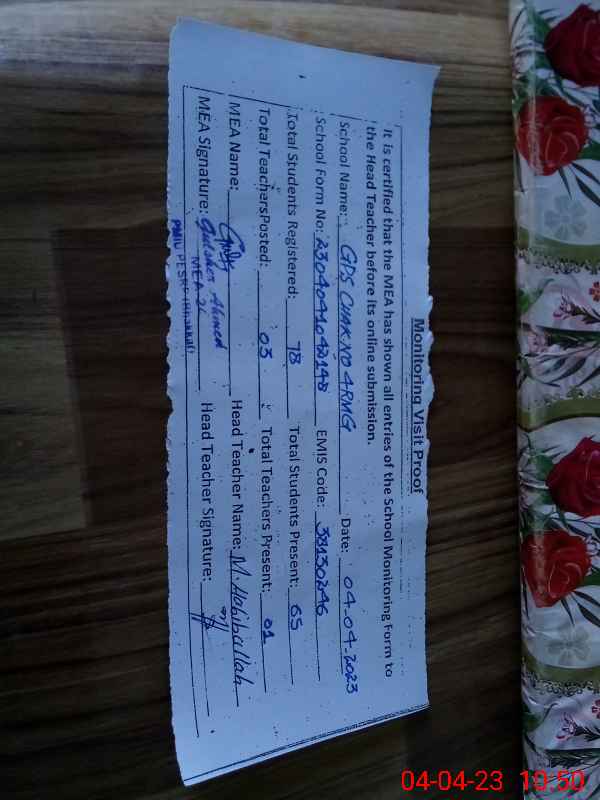 Monitoring Visit Proof
It is certified that the MEA has shown all entries of the School Monitoring Form to
the Head Teacher before its online submission.
School Name: GPS CHAK NO 4 RMG Date: 04.04.2023
School Form No: EMIS Code: 38130246
Total Students Registered: 78 Total Students Present: 65
Total Teachers Posted: 03 Total Teachers Present: 01
MEA Name: Head Teacher Name: M. Habibullah
MEA Signature: Gulsher Ahmed Head Teacher Signature:
MEA-26
PMIU PESRP (Bhakkar)
04-04-23 10:50